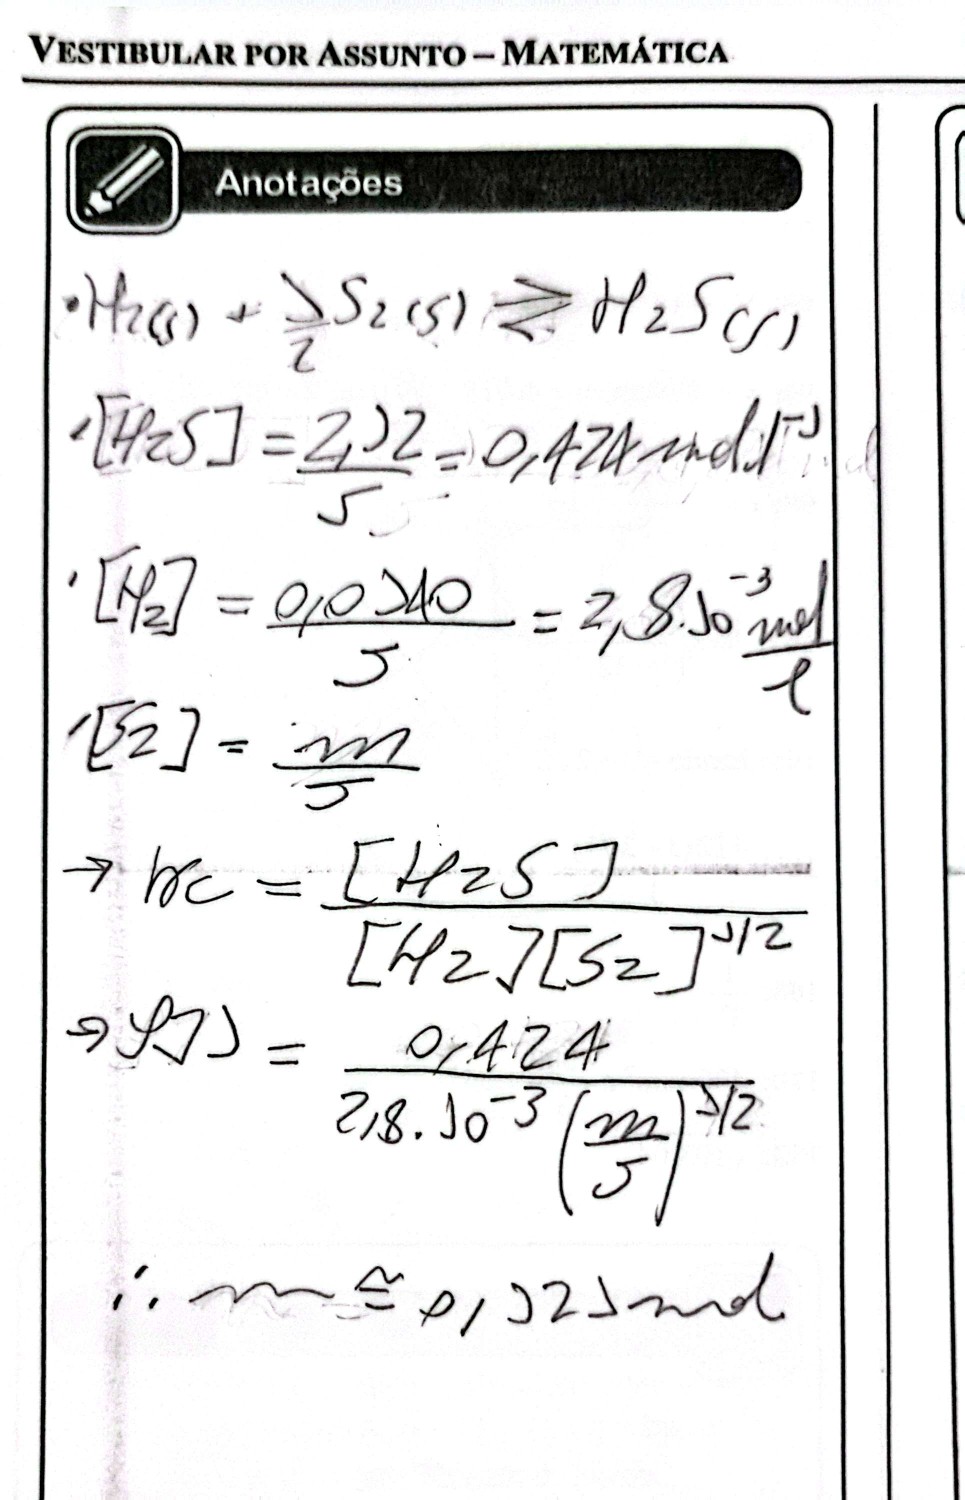 VESTIBULAR POR ASSUNTO – MATEMÁTICA
Anotações
• H2(g) + 1/2 S2(g) ⇌ H2S(g)
• [H2S] = 2,12/5 = 0,424 mol l⁻¹
• [H2] = 0,0140/5 = 2,8.10⁻³ mol/l
• [S2] = m/5
→ Kc = [H2S]/[H2][S2]^1/2
→ 971 = 0,424/2,8.10⁻³ (m/5)^1/2
∴ m ≅ 0,121 mol